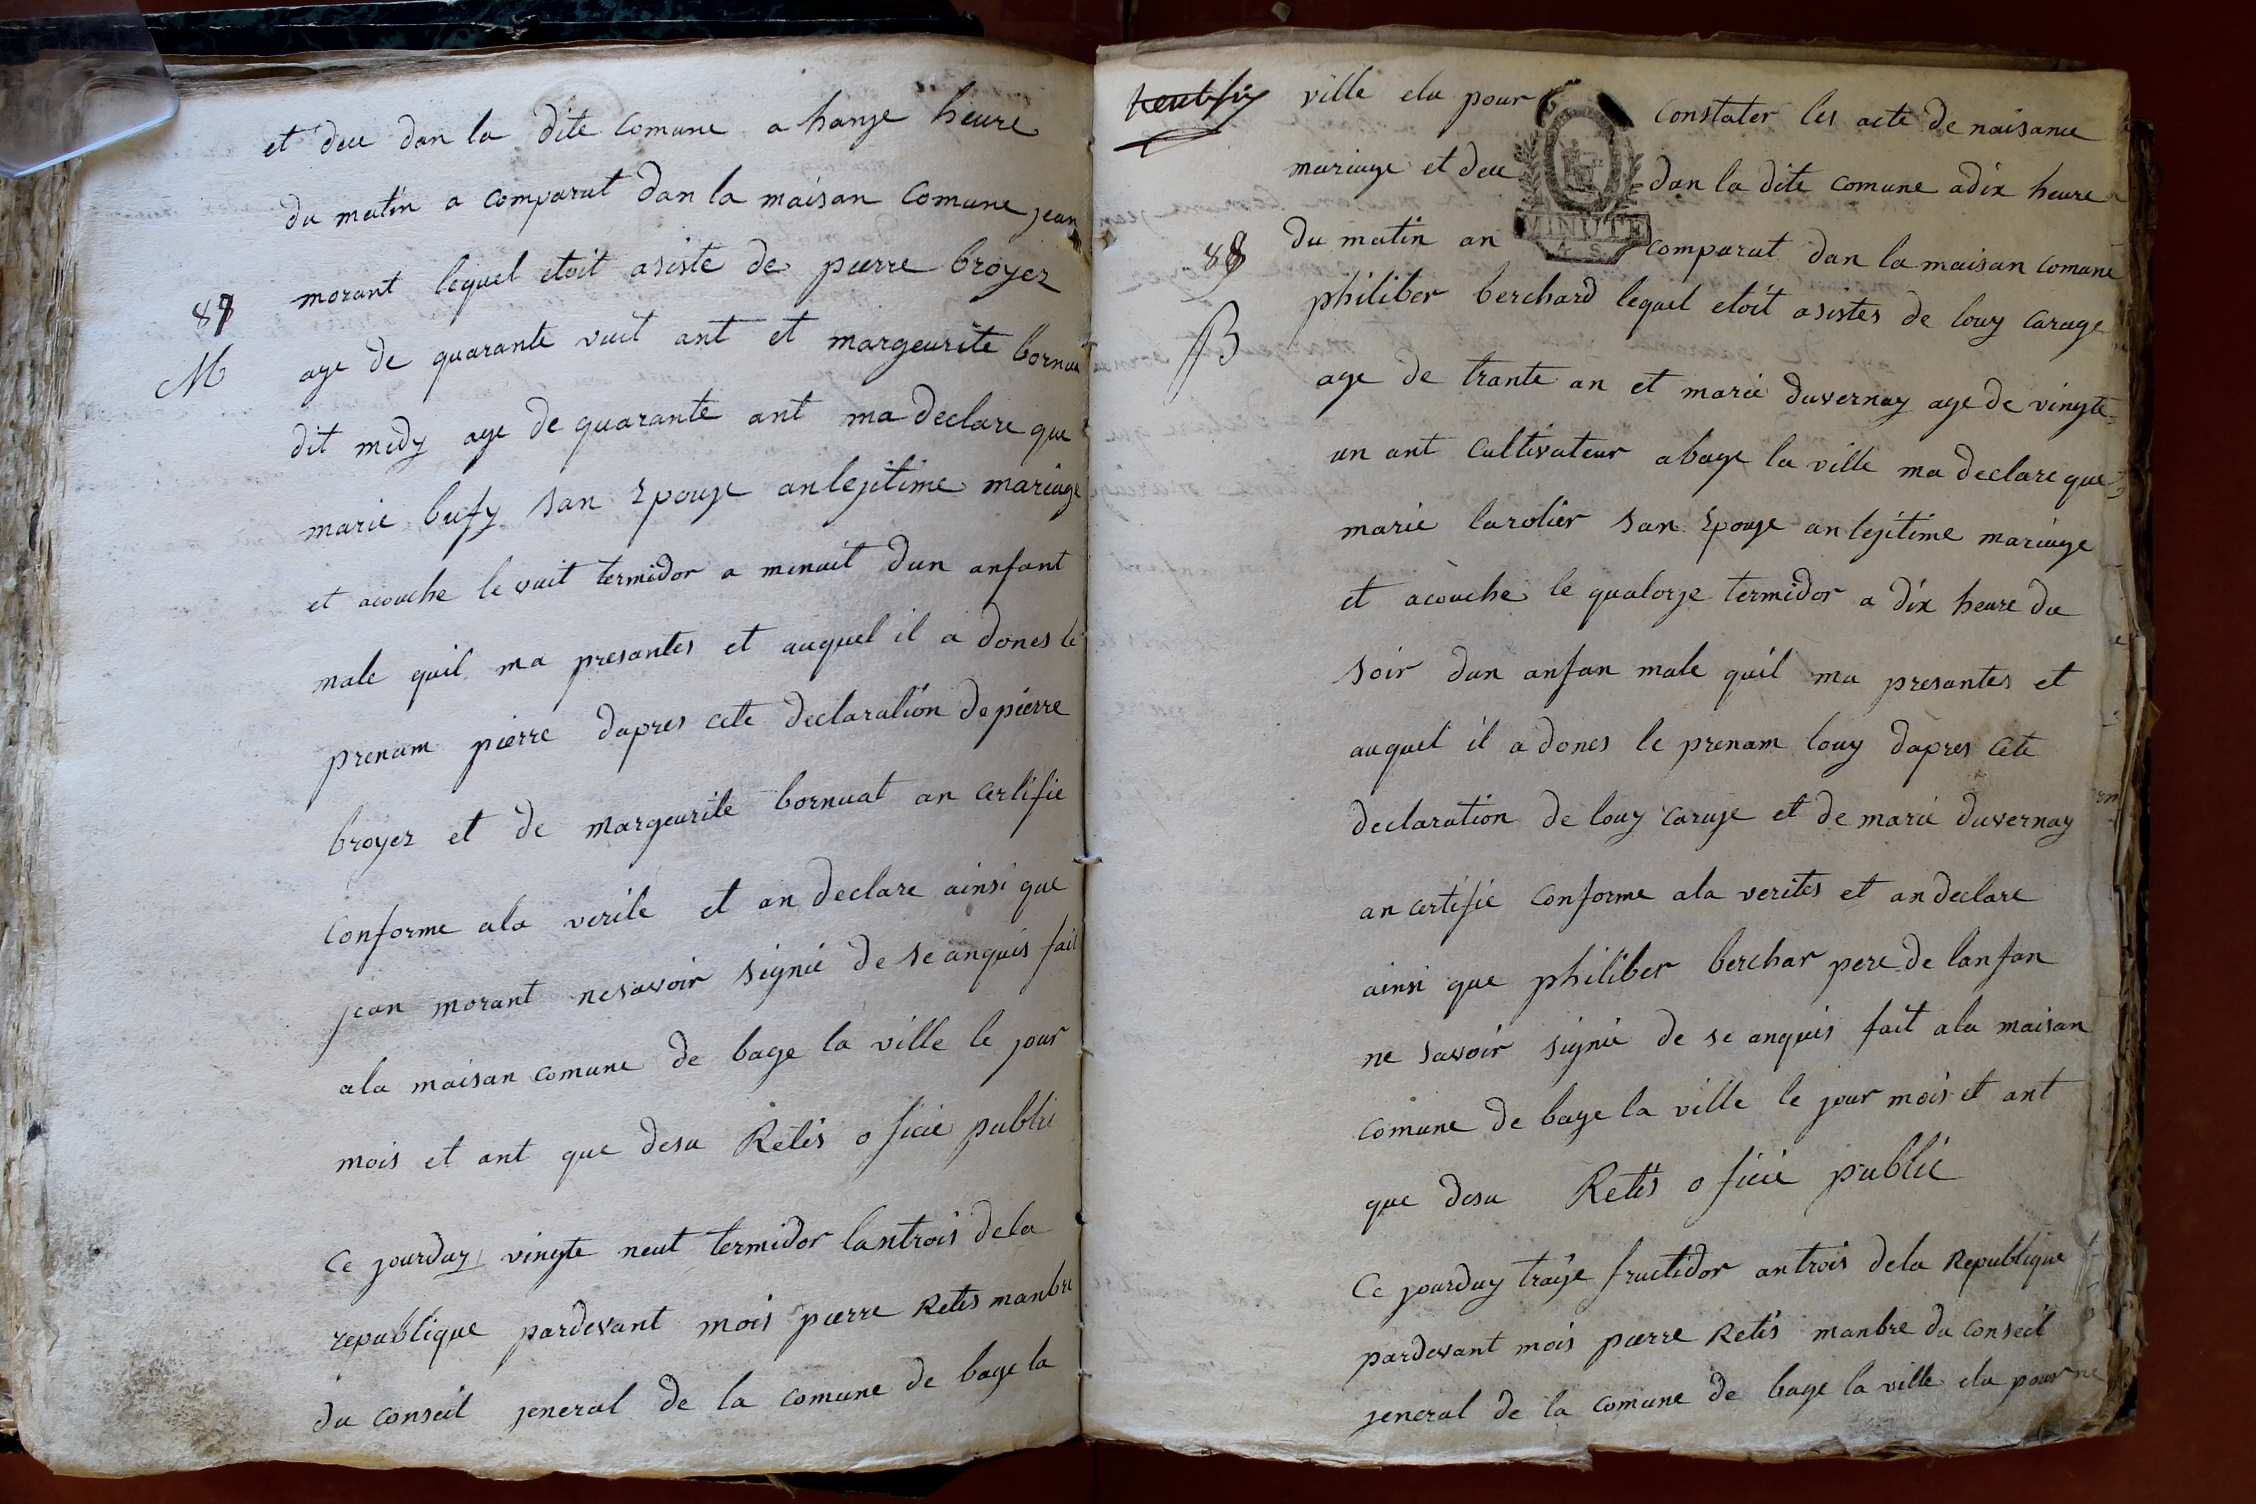 et deu dan la dite comune a hanze heure
du matin a comparut dan la maisan comune jean
morant lequel etoit asiste de pierre broyer
87
age de quarante vuit ant et margeurite bornua
M
dit medy age de quarante ant ma declare que
marie bufy san epouze an lejitime mariage
et acouche le vuit termidor a minuit dun anfant
male quil ma presantes et auquel il a dones le
prenam pierre dapres cete declaration de pierre
broyer et de margeurite bornuat an certifie
conforme ala verite et an declare ainsi que
jean morant ne savoir signié de se anquis fait
ala maisan comune de bage la ville le jour
mois et ant que desu Retis oficié publié
Ce jourduy vingte neut termidor lantrois dela
republique pardevant mois pierre Retis manbre
du conseil jeneral de la comune de bage la
ville elu pour constater les acte de naisance
mariage et deu dan la dite comune a dix heure
MINUTE
du matin an comparut dan la maisan comune
88
philiber berchard lequel etoit asistes de louy caruge
B
age de trante an et marie duvernay age de vingte
un ant cultivateur a bage la ville ma declare que
marie larolier san epouze an lejitime mariage
et acouche le quatorze termidor a dix heure du
soir dun anfan male quil ma presantes et
auquel il a dones le prenam louy dapres cete
declaration de louy caruje et de marie duvernay
an certifie conforme ala verites et an declare
ainsi que philiber berchar pere de lanfan
ne savoir signié de se anquis fait ala maisan
comune de bage la ville le jour mois et ant
que desu Retis oficié publié
Ce jourduy traize fructidor an trois dela Republique
pardevant mois pierre Retis manbre du conseil
jeneral de la comune de bage la ville elu pour